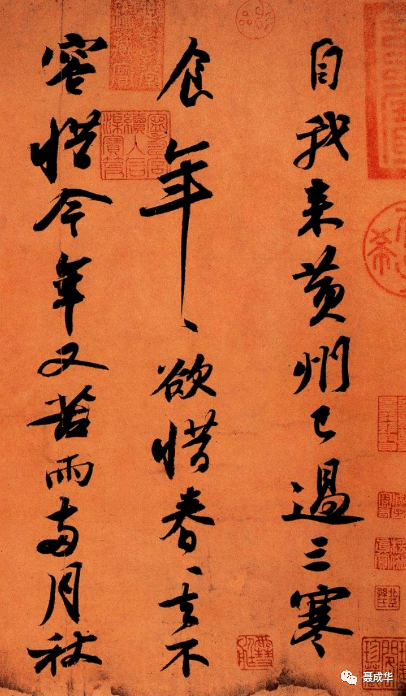 自我来黄州已過三寒
食年、欲惜春、去不
容惜今年又苦雨兩月秋
聂成华